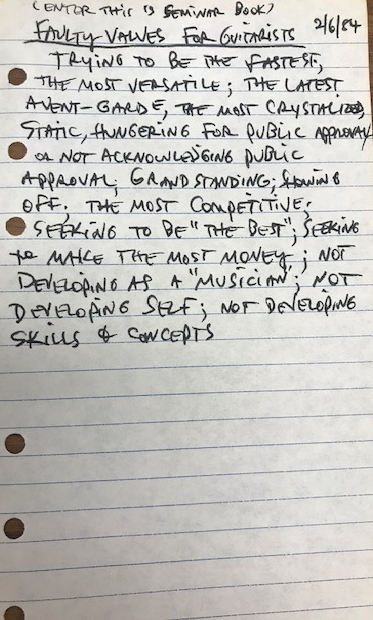 (ENTER THIS IS SEMINAR BOOK)
2/6/84
FAULTY VALUES FOR GUITARISTS
TRYING TO BE THE FASTEST,
THE MOST VERSATILE; THE LATEST
AVENT-GARDE, THE MOST CRYSTALIZED,
STATIC, HUNGERING FOR PUBLIC APPROVAL
OR NOT ACKNOWLEDGING PUBLIC
APPROVAL; GRANDSTANDING; SHOWING
OFF; THE MOST COMPETITIVE;
SEEKING TO BE "THE BEST"; SEEKING
TO MAKE THE MOST MONEY; NOT
DEVELOPING AS A "MUSICIAN"; NOT
DEVELOPING SELF; NOT DEVELOPING
SKILLS & CONCEPTS